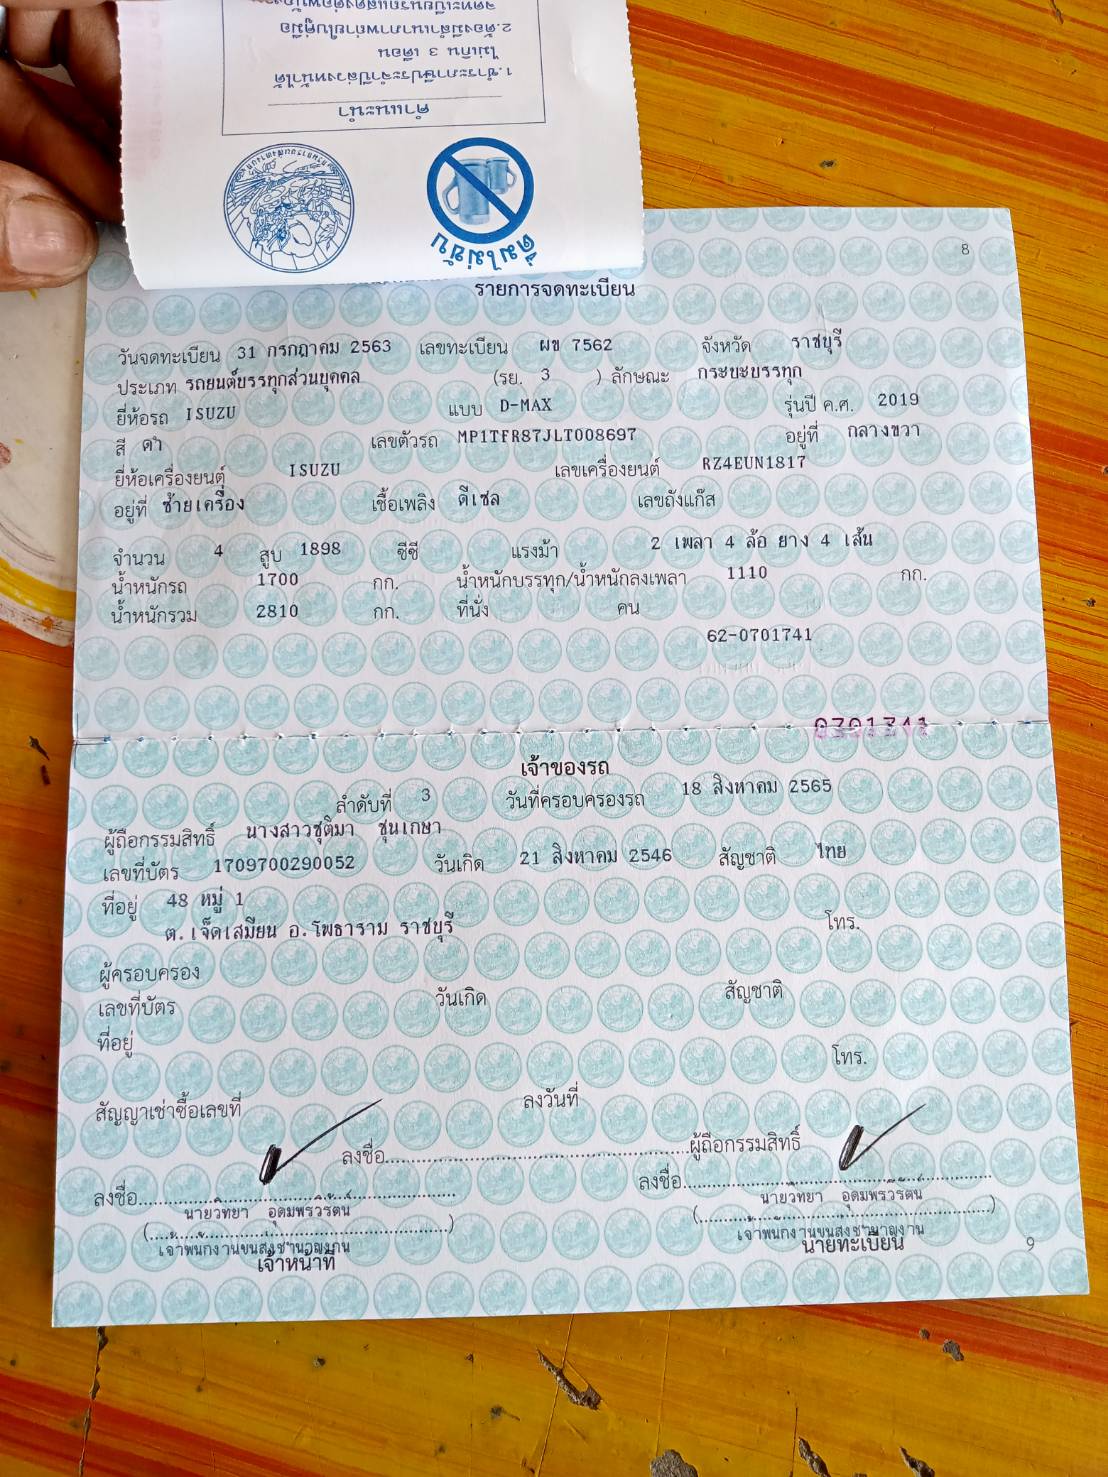 คำแนะนำ
1.ชำระภาษีประจำปีล่วงหน้าได้
ไม่เกิน 3 เดือน
2.ต้องมีสำเนาภาพถ่ายใบคู่มือ
ดื่มไม่ขับ
8
รายการจดทะเบียน
วันจดทะเบียน 31 กรกฎาคม 2563 เลขทะเบียน ผข 7562 จังหวัด ราชบุรี
ประเภท รถยนต์บรรทุกส่วนบุคคล (รย. 3 ) ลักษณะ กระบะบรรทุก
ยี่ห้อรถ ISUZU แบบ D-MAX รุ่นปี ค.ศ. 2019
สี ดำ เลขตัวรถ MP1TFR87JLT008697 อยู่ที่ กลางขวา
ยี่ห้อเครื่องยนต์ ISUZU เลขเครื่องยนต์ RZ4EUN1817
อยู่ที่ ซ้ายเครื่อง เชื้อเพลิง ดีเซล เลขถังแก๊ส
จำนวน 4 สูบ 1898 ซีซี แรงม้า 2 เพลา 4 ล้อ ยาง 4 เส้น
น้ำหนักรถ 1700 กก. น้ำหนักบรรทุก/น้ำหนักลงเพลา 1110 กก.
น้ำหนักรวม 2810 กก. ที่นั่ง คน
62-0701741
เจ้าของรถ
ลำดับที่ 3 วันที่ครอบครองรถ 18 สิงหาคม 2565
ผู้ถือกรรมสิทธิ์ นางสาวชุติมา ชุนเกษา
เลขที่บัตร 1709700290052 วันเกิด 21 สิงหาคม 2546 สัญชาติ ไทย
ที่อยู่ 48 หมู่ 1
ต.เจ็ดเสมียน อ.โพธาราม ราชบุรี โทร.
ผู้ครอบครอง
เลขที่บัตร วันเกิด สัญชาติ
ที่อยู่
โทร.
สัญญาเช่าซื้อเลขที่ ลงวันที่
ลงชื่อ ผู้ถือกรรมสิทธิ์
ลงชื่อ ลงชื่อ
นายวิทยา อุดมพรวิรัตน์ นายวิทยา อุดมพรวิรัตน์
เจ้าพนักงานขนส่งชำนาญงาน เจ้าพนักงานขนส่งชำนาญงาน
เจ้าหน้าที่ นายทะเบียน
9